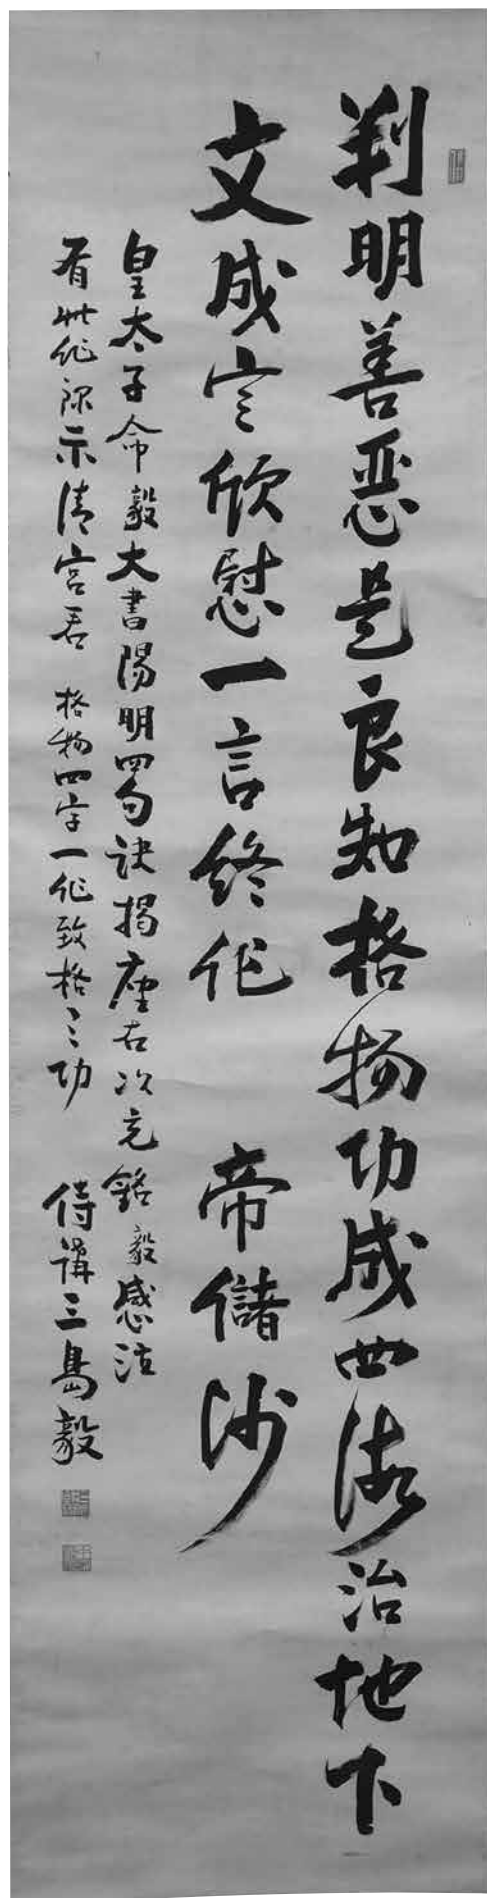 判明善悪是良知格物功成四海治地下
文成定欣慰一言終作　帝儲師
皇太子命毅大書陽明四句訣掲座右以充銘毅感泣
有此作録示清宮君　格物四字一作致格之功　侍講三島毅